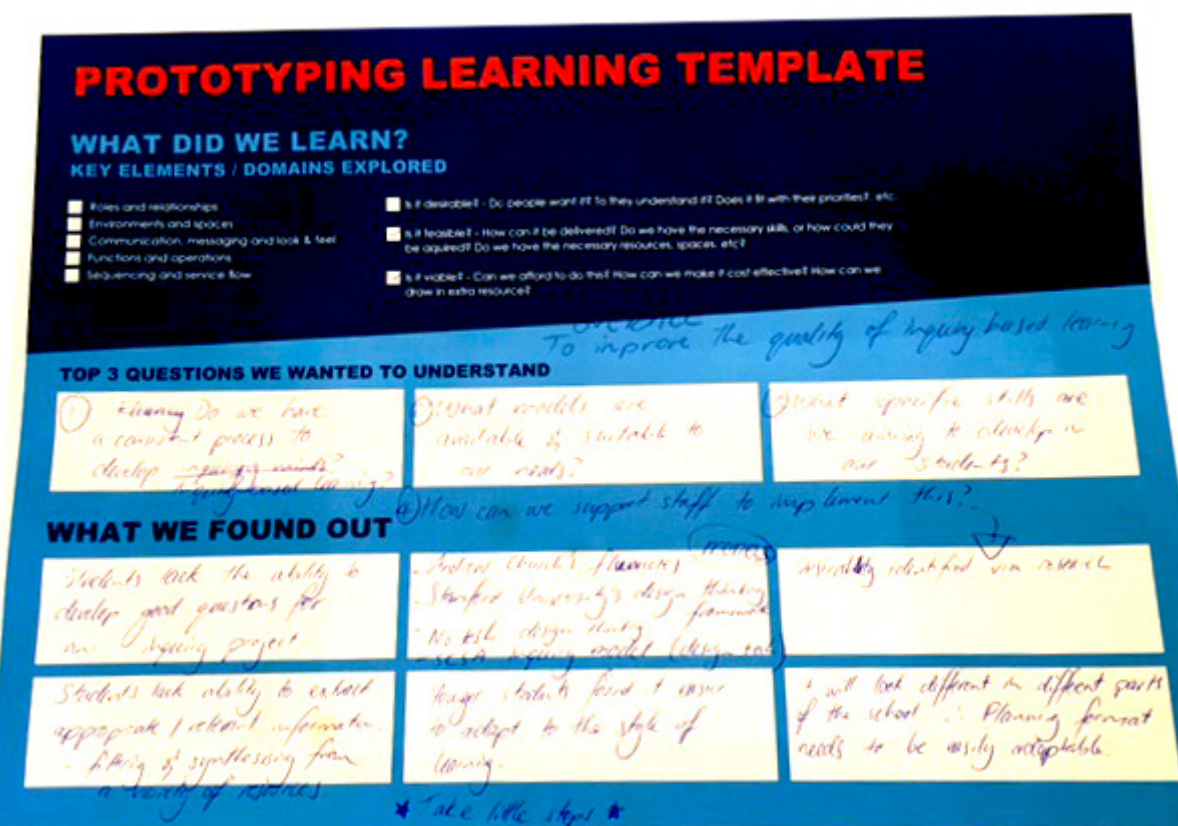 PROTOTYPING LEARNING TEMPLATE
WHAT DID WE LEARN?
KEY ELEMENTS / DOMAINS EXPLORED
Roles and relationships
Environments and spaces
Communication, messaging and look & feel
Functions and operations
Sequencing and service flow
Is it desirable? - Do people want it? To they understand it? Does it fit with their priorities?, etc.
Is it feasible? - How can it be delivered? Do we have the necessary skills, or how could they
be aquired? Do we have the necessary resources, spaces, etc?
Is it viable? - Can we afford to do this? How can we make it cost effective? How can we
draw in extra resource?
To improve the quality of inquiry based learning
TOP 3 QUESTIONS WE WANTED TO UNDERSTAND
① Do we have
a consistent process to
develop inquiring minds?
inquiry-based learning?
What models are
available & suitable to
our needs?
What specific skills are
we aiming to develop in
our students?
④ How can we support staff to implement this?
WHAT WE FOUND OUT
Students lack the ability to
develop good questions for
an inquiry project
- Andrew Church's fluencies
- Stanford University's design thinking
framework
- No tosh design thinking
- SCSA inquiry model (design tech)
identified via research
Students lack ability to extract
appropriate / relevant information.
- filtering & synthesising from
a variety of resources
Younger students found it easier
to adapt to the style of
learning.
It will look different in different parts
of the school ∴ Planning format
needs to be easily adaptable.
★ Take little steps ★